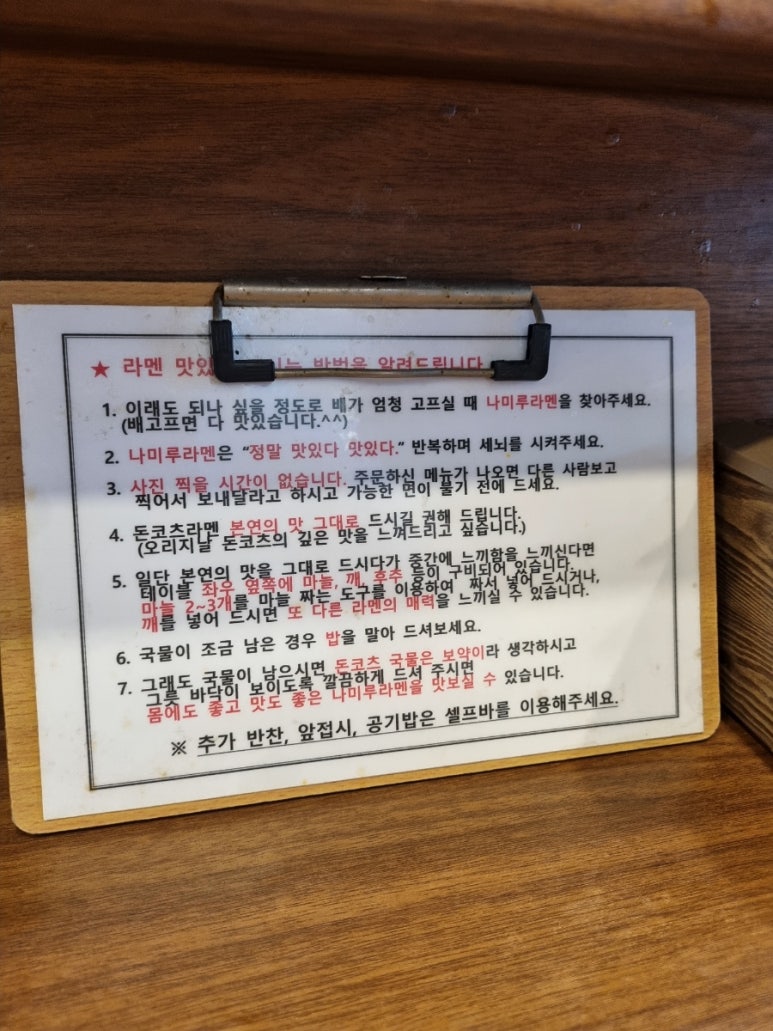 ★ 라멘 방법을 알려드립니다.
1. 이래도 되나 싶을 정도로 배가 엄청 고프실 때 나미루라멘을 찾아주세요.
(배고프면 다 맛있습니다.^^)
2. 나미루라멘은 “정말 맛있다 맛있다.” 반복하며 세뇌를 시켜주세요.
3. 사진 찍을 시간이 없습니다. 주문하신 메뉴가 나오면 다른 사람보고
찍어서 보내달라고 하시고 가능한 면이 불기 전에 드세요.
4. 돈코츠라멘 본연의 맛 그대로 드시길 권해 드립니다.
(오리지날 돈코츠의 깊은 맛을 느껴드리고 싶습니다.)
5. 일단 본연의 맛을 그대로 드시다가 중간에 느끼함을 느끼신다면
테이블 좌우 옆쪽에 마늘, 깨, 후추 등이 구비되어 있습니다.
마늘 2~3개를 마늘 짜는 도구를 이용하여 짜서 넣어 드시거나,
깨를 넣어 드시면 또 다른 라멘의 매력을 느끼실 수 있습니다.
6. 국물이 조금 남은 경우 밥을 말아 드셔보세요.
7. 그래도 국물이 남으시면 돈코츠 국물은 보약이라 생각하시고
그릇 바닥이 보이도록 깔끔하게 드셔 주시면
몸에도 좋고 맛도 좋은 나미루라멘을 맛보실 수 있습니다.
※ 추가 반찬, 앞접시, 공기밥은 셀프바를 이용해주세요.